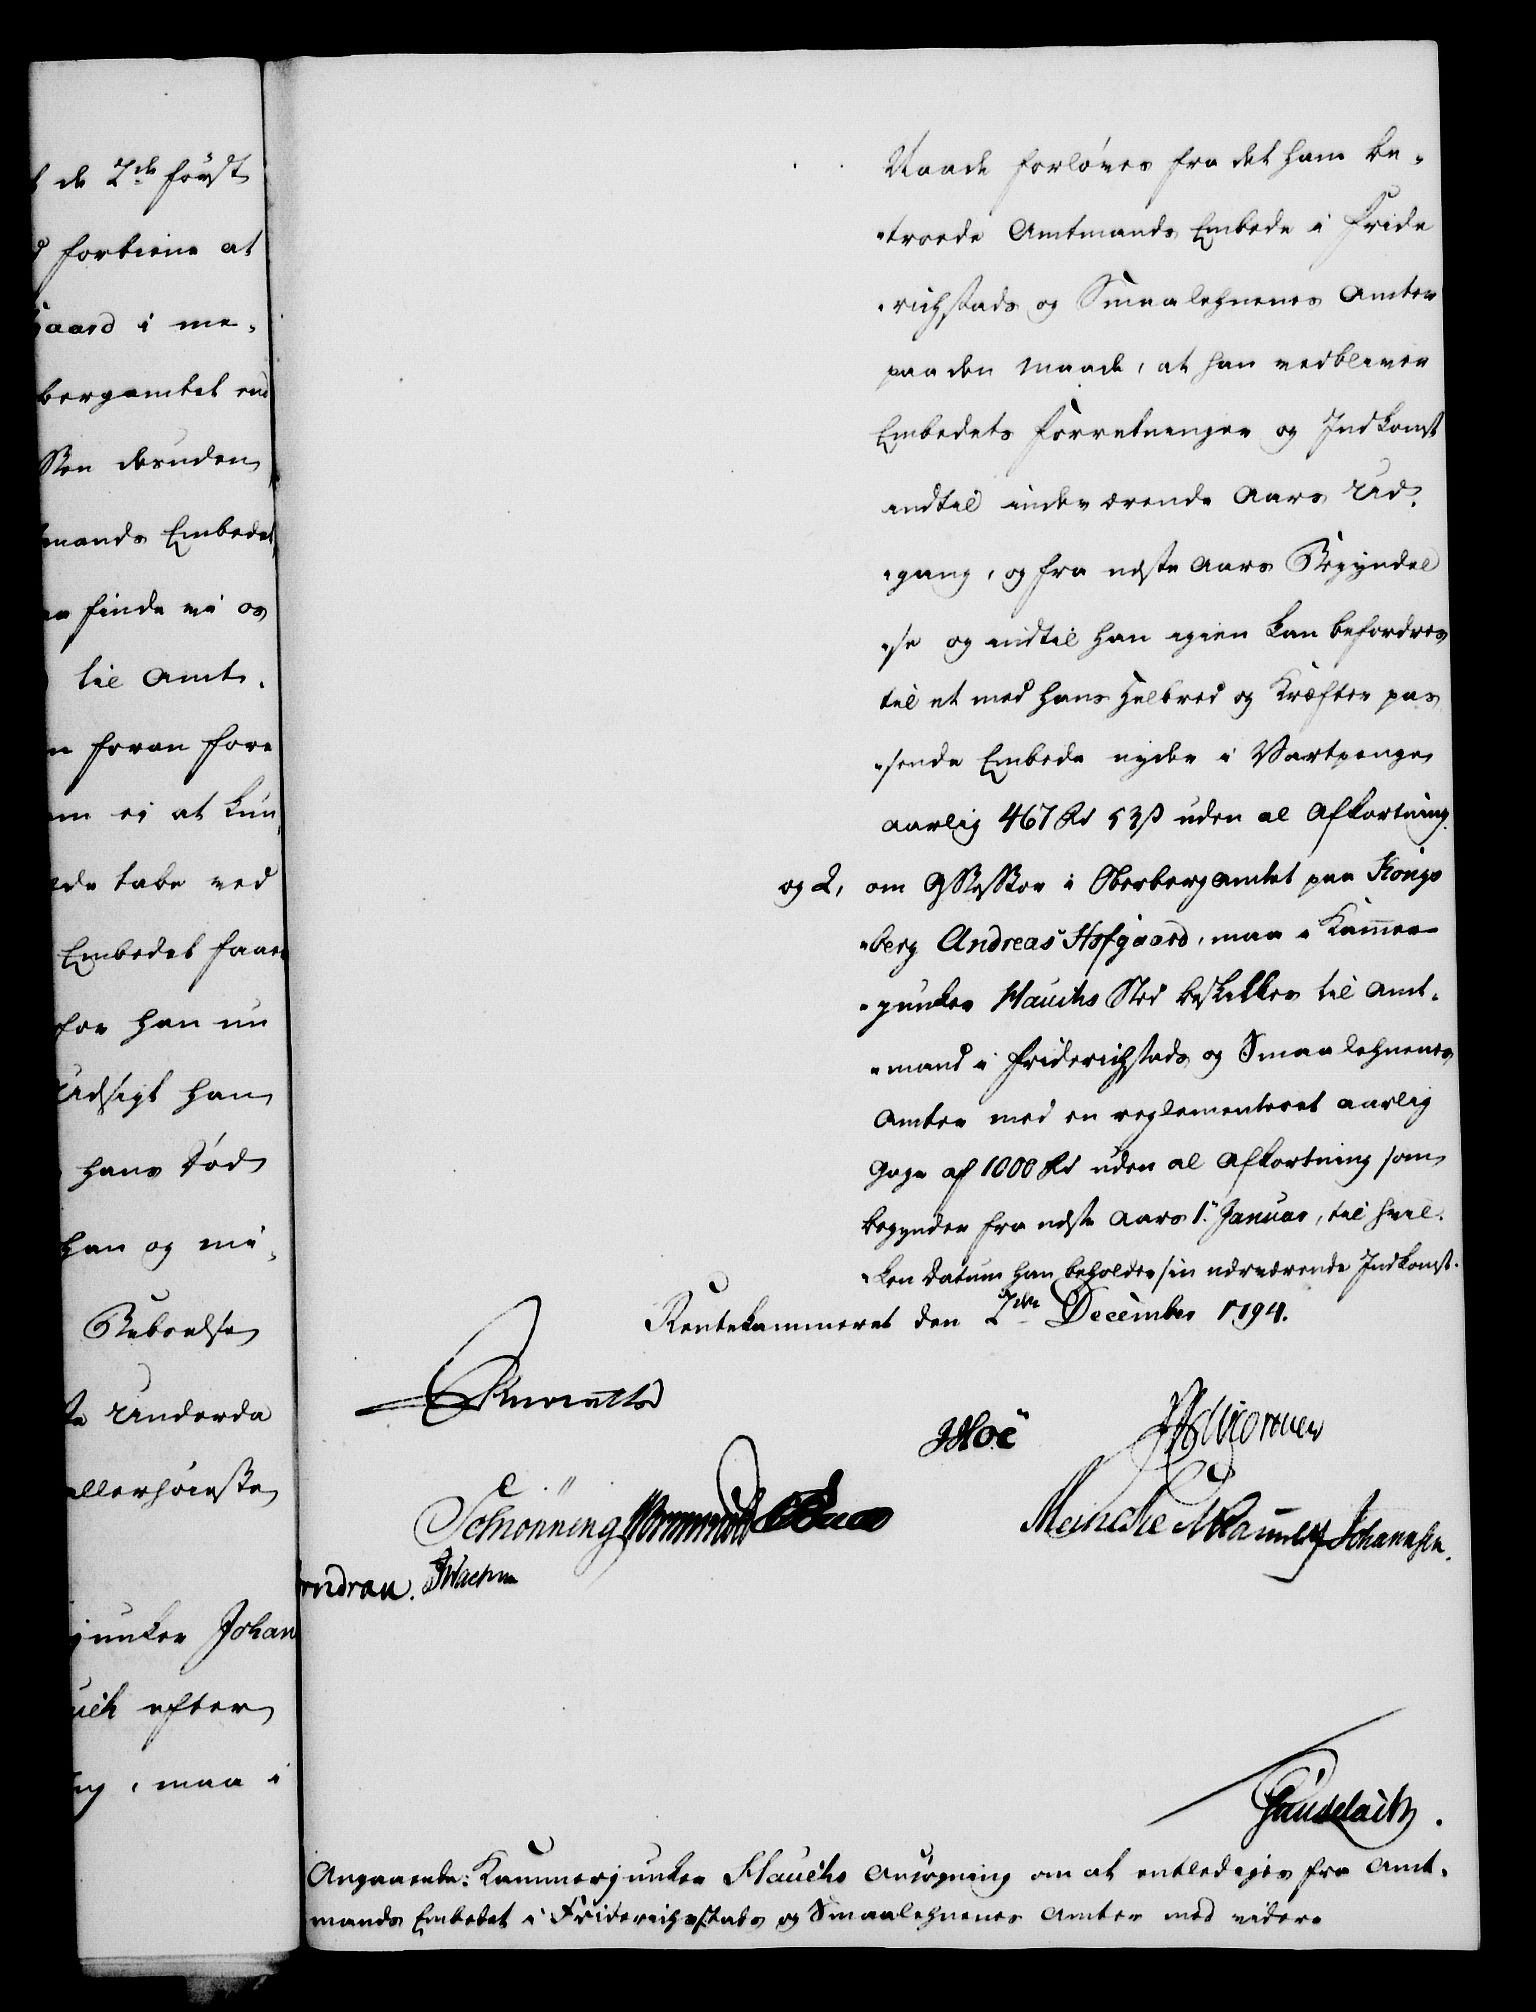 t de 2de först
d fortiene at
gaard i me-
bergamtet end
Sten desuden
mands Embedet
finde vi os
til Amt-
n foran fore
em ei at kun-
ede tabe ved
Embedet faaer
for han nu
Udsigt han
hans Död
han og mi-
Skabelse
te Underda
allerhöieste
junker Johan
uch efter
ng, maa i
Naade forløves fra det ham be-
-troede Amtmands Embede i Fride
-richstads og Smaalehnenes Amter
paa den Maade, at han vedbliver
Embedets Forretninger og Indkomst
indtil indeværende Aars Ud-
-gang, og fra næste Aars Begyndel
-se og indtil han igien kan befordres
til et med hans Helbred og Kræfter pas
-sende Embede nyder i Vartpenge
aarlig 467 Rd 53 ß uden al Afkortning.
og 2, om Assessor i Oberbergamtet paa Kongs
-berg Andreas Hofgaard, maa i Kammer
-junker Hauchs Sted beskikkes til Amt-
-mand i Friderichstads og Smaalehnenes
Amter med en reglementeret aarlig
Gage af 1000 Rd uden al Afkortning som
begynder fra næste Aars 1. Januar, til hvil-
-ken Datum han beholder sin nærværende Indkomst.
Rentekammeret den 2den December 1794.
JHoë
Schönning Meincke Johannsen.
JWacher
Angaaende: Kammerjunker Hauchs Ansögning om at entlediges fra Amt-
mands Embedet i Friderichsstads og Smaalehnenes Amter med videre